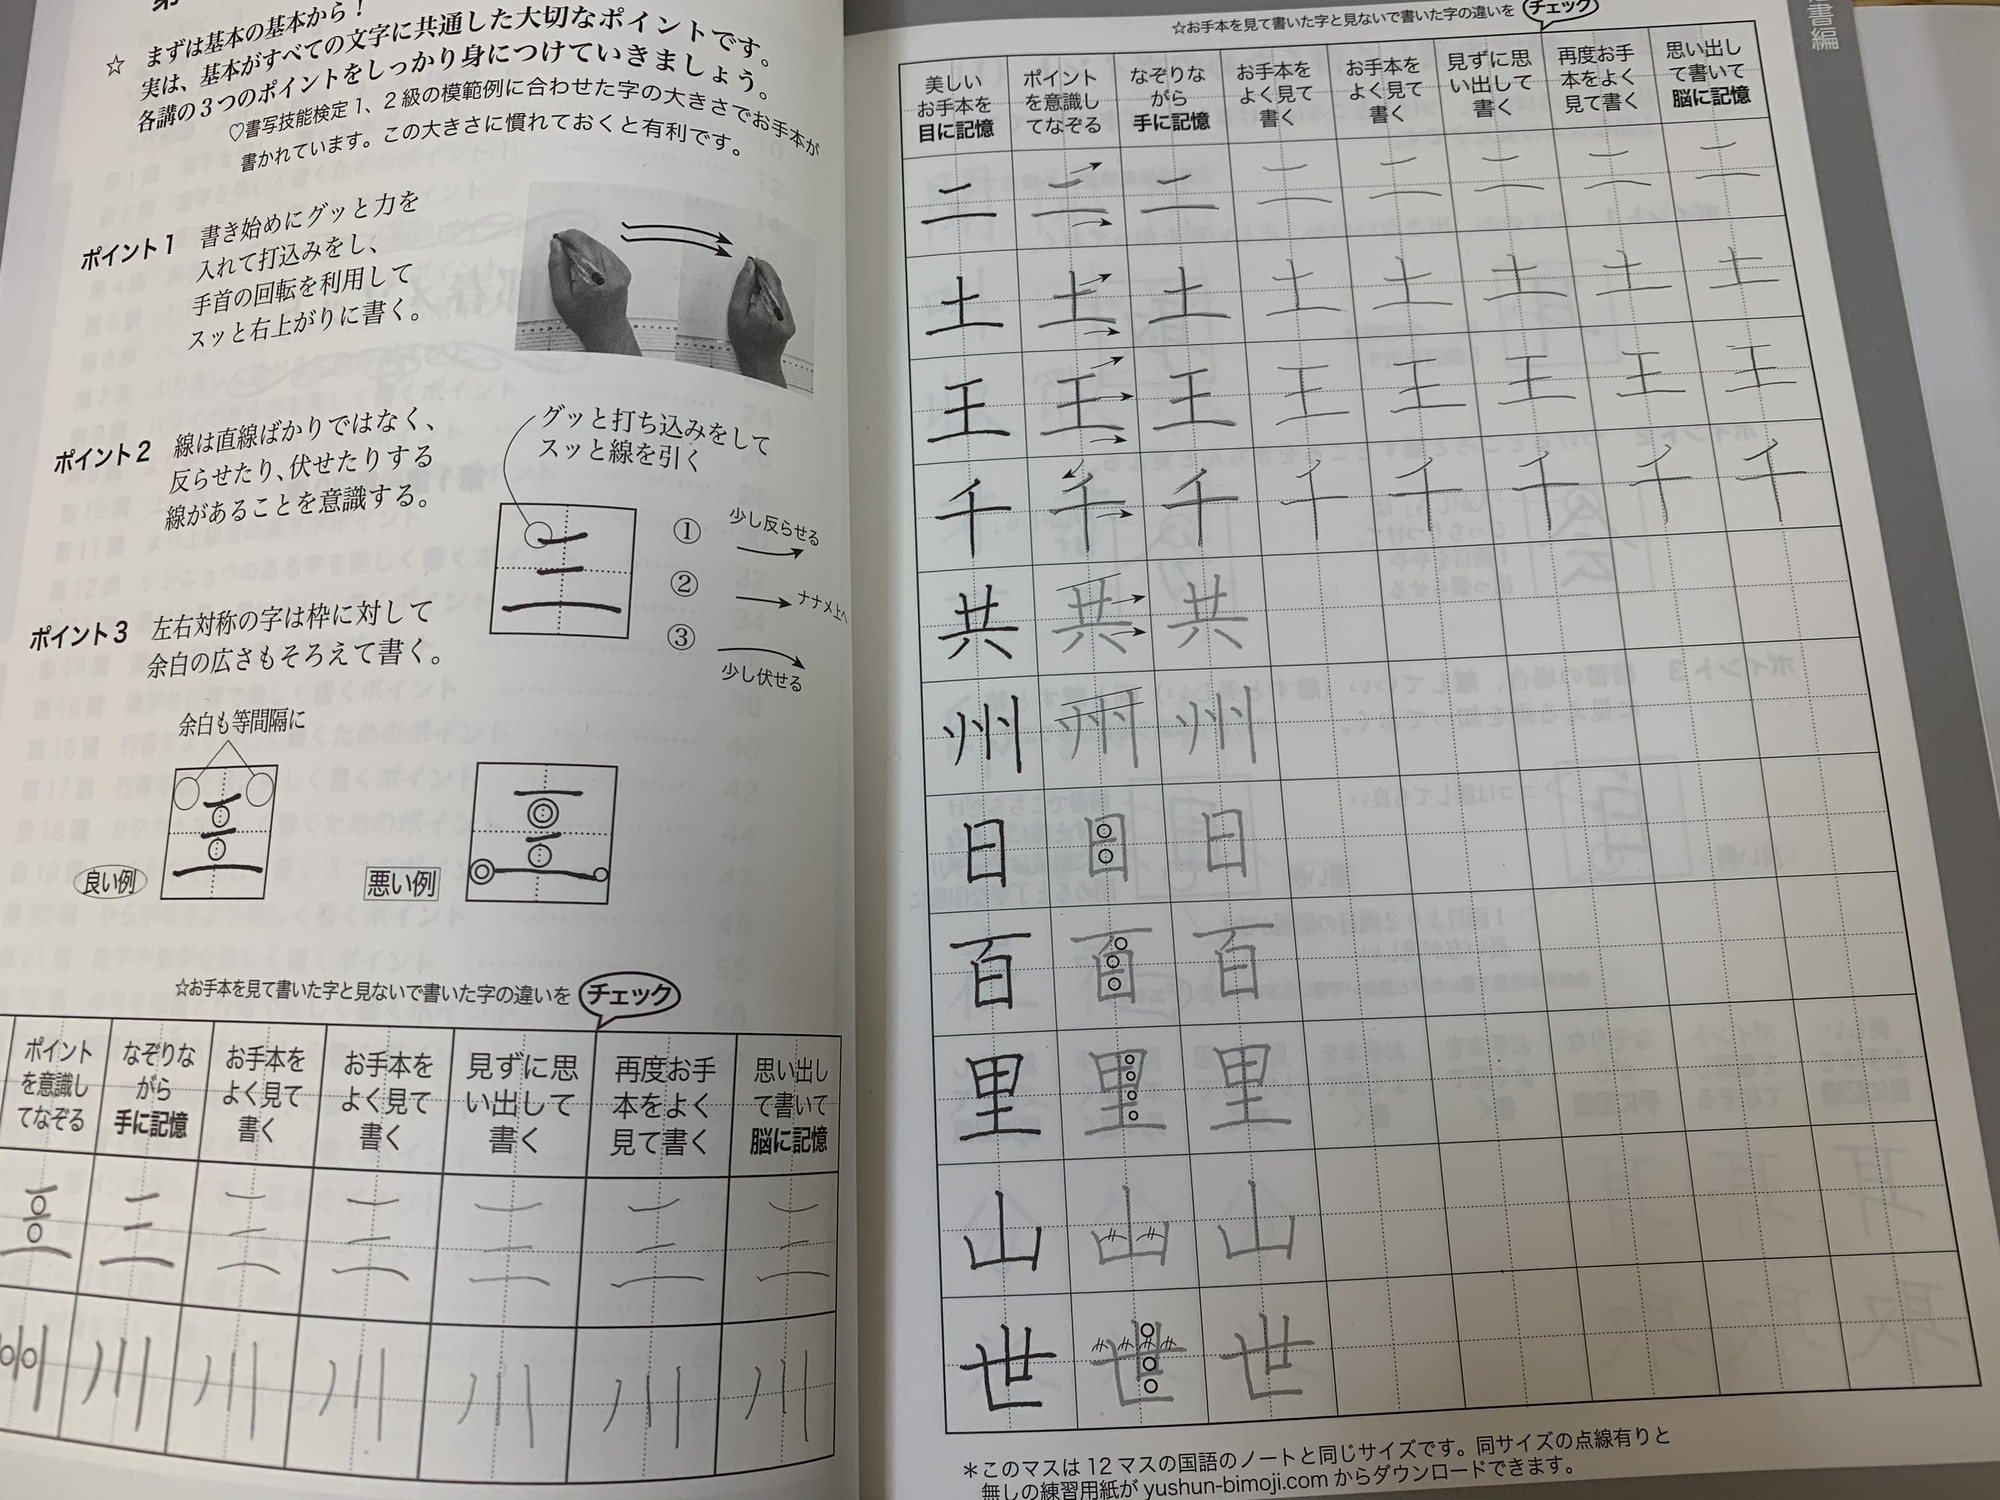 ☆ まずは基本の基本から！
実は、基本がすべての文字に共通した大切なポイントです。
各講の３つのポイントをしっかり身につけていきましょう。
♡書写技能検定１、２級の模範例に合わせた字の大きさでお手本が
書かれています。この大きさに慣れておくと有利です。
ポイント１ 書き始めにグッと力を
入れて打込みをし、
手首の回転を利用して
スッと右上がりに書く。
ポイント２ 線は直線ばかりではなく、
反らせたり、伏せたりする
線があることを意識する。
グッと打ち込みをして
スッと線を引く
三
① 少し反らせる
② ナナメ上へ
③ 少し伏せる
ポイント３ 左右対称の字は枠に対して
余白の広さもそろえて書く。
余白も等間隔に
三 三
良い例 悪い例
☆お手本を見て書いた字と見ないで書いた字の違いを チェック
ポイント なぞりな お手本を お手本を 見ずに思 再度お手 思い出し
を意識し がら よく見て よく見て い出して 本をよく て書いて
てなぞる 手に記憶 書く 書く 書く 見て書く 脳に記憶
三 三 三 三 三 三 三
川 川 川 川 川 川 川
書編
☆お手本を見て書いた字と見ないで書いた字の違いを チェック
美しい ポイント なぞりな お手本を お手本を 見ずに思 再度お手 思い出し
お手本を を意識し がら よく見て よく見て い出して 本をよく て書いて
目に記憶 てなぞる 手に記憶 書く 書く 書く 見て書く 脳に記憶
二 二 二 二 二 二 二 二
土 土 土 土 土 土 土 土
王 王 王 王 王 王 王 王
千 千 千 千 千 千 千 千
共 共 共
州 州 州
日 日 日
百 百 百
里 里 里
山 山 山
世 世 世
＊このマスは 12 マスの国語のノートと同じサイズです。同サイズの点線有りと
無しの練習用紙が yushun-bimoji.com からダウンロードできます。